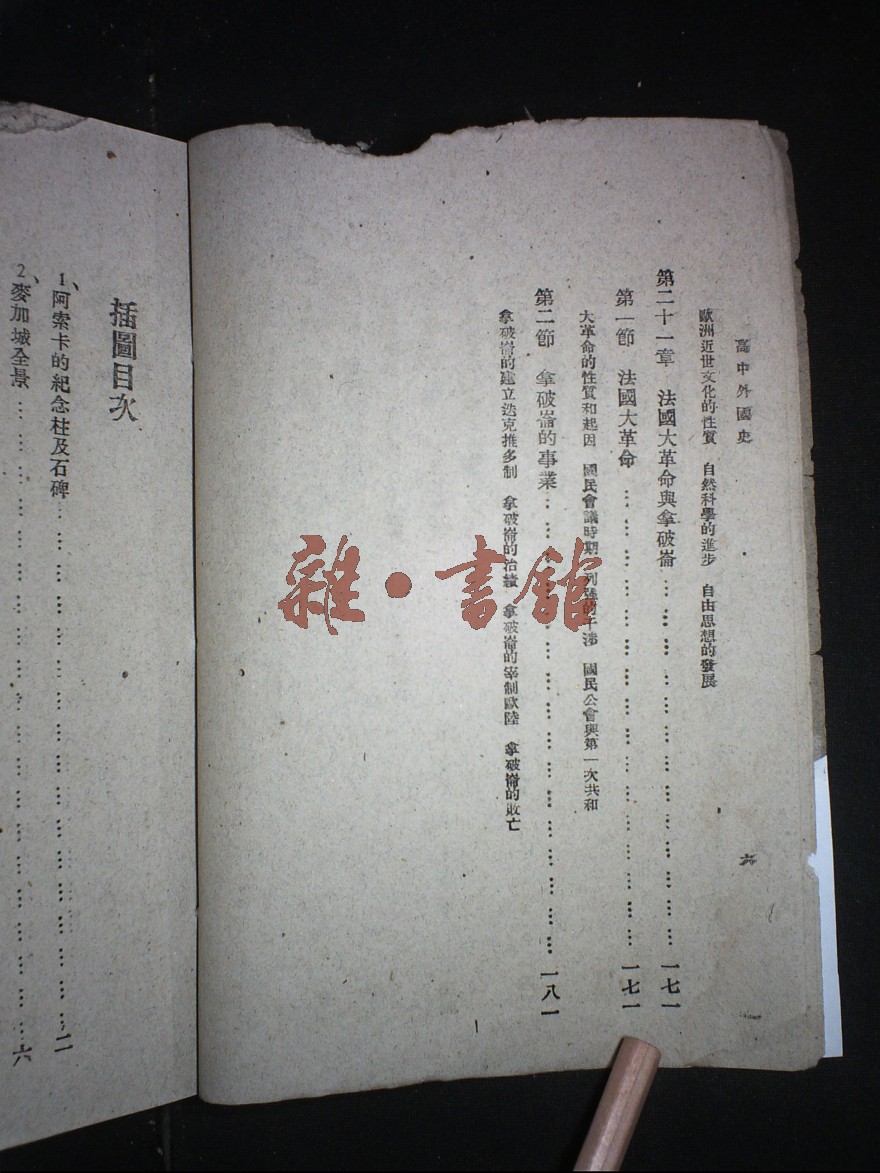 高中外國史
六
歐洲近世文化的性質 自然科學的進步 自由思想的發展
第二十一章 法國大革命與拿破崙 … … … … … … … … … … … 一七一
第一節 法國大革命 … … … … … … … … … … … … … … 一七一
大革命的性質和起因 國民會議時期 列強的干涉 國民公會與第一次共和
第二節 拿破崙的事業 … … … … … … … … … … … … … … 一八一
拿破崙的建立迭克推多制 拿破崙的治績 拿破崙的宰制歐陸 拿破崙的敗亡
插圖目次
1、阿索卡的紀念柱及石碑 … … … … … … … … … … … … … 二
2、麥加城全景 … … … … … … … … … … … … … … … … 六
雜·書館